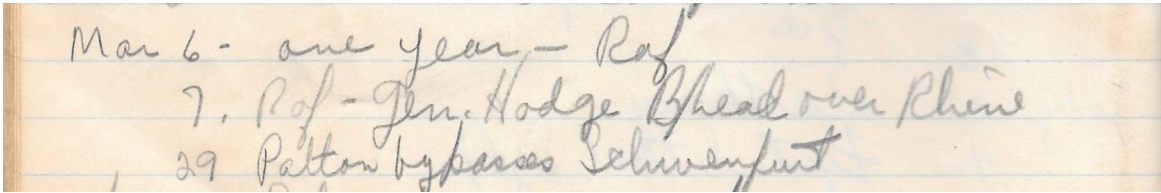 Mar 6 - one year, - Raf
7. Raf - Gen. Hodge Bhead over Rhine
29 Patton bypasses Schwenfurt